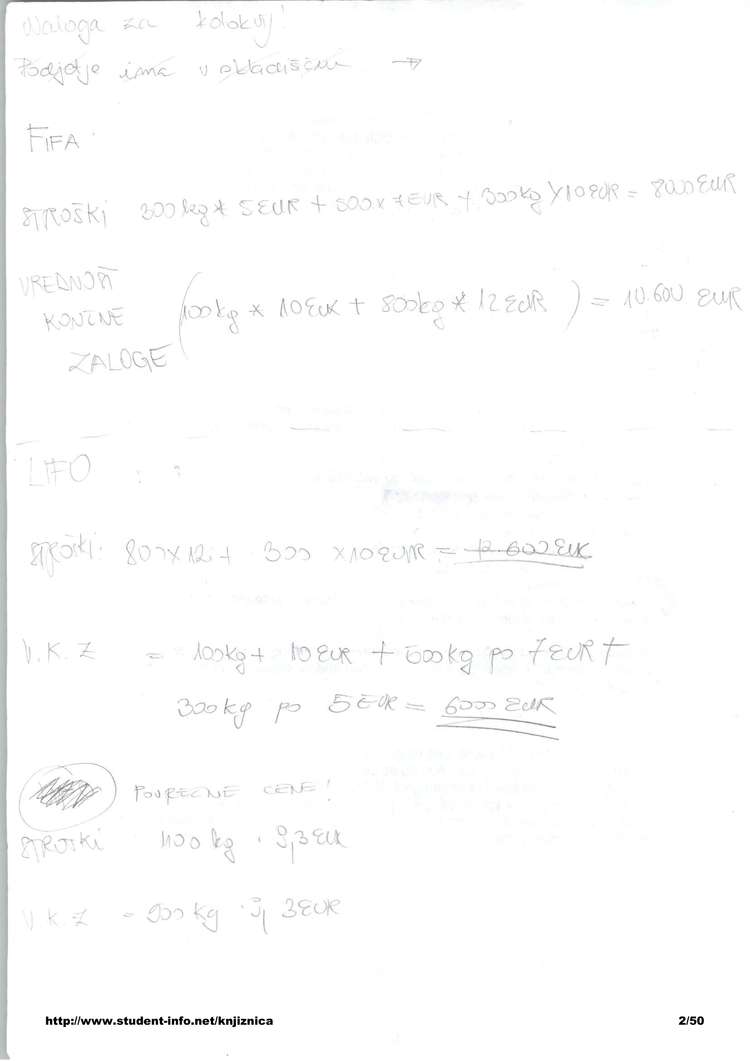 Naloga za kolokvij!
Podjetje ima v skladiščni →
FIFA
STROŠKI 300kg * 5EUR + 500 x 7EUR + 300kg x 10 EUR = 8000 EUR
VREDNOST
KONČNE (100kg * 10EUR + 800kg * 12 EUR) = 10.600 EUR
ZALOGE
LIFO : :
STROŠKI: 800x12 + 300 x10EUR = 12.600 EUR
V.K.Z = 100kg + 10 EUR + 500kg po 7EUR +
300kg po 5EUR = 6000 EUR
POVREČNE CENE!
STROŠKI 1100 kg . 9,3 EUR
V.K.Z = 900 kg . 9,3EUR
http://www.student-info.net/knjiznica 2/50